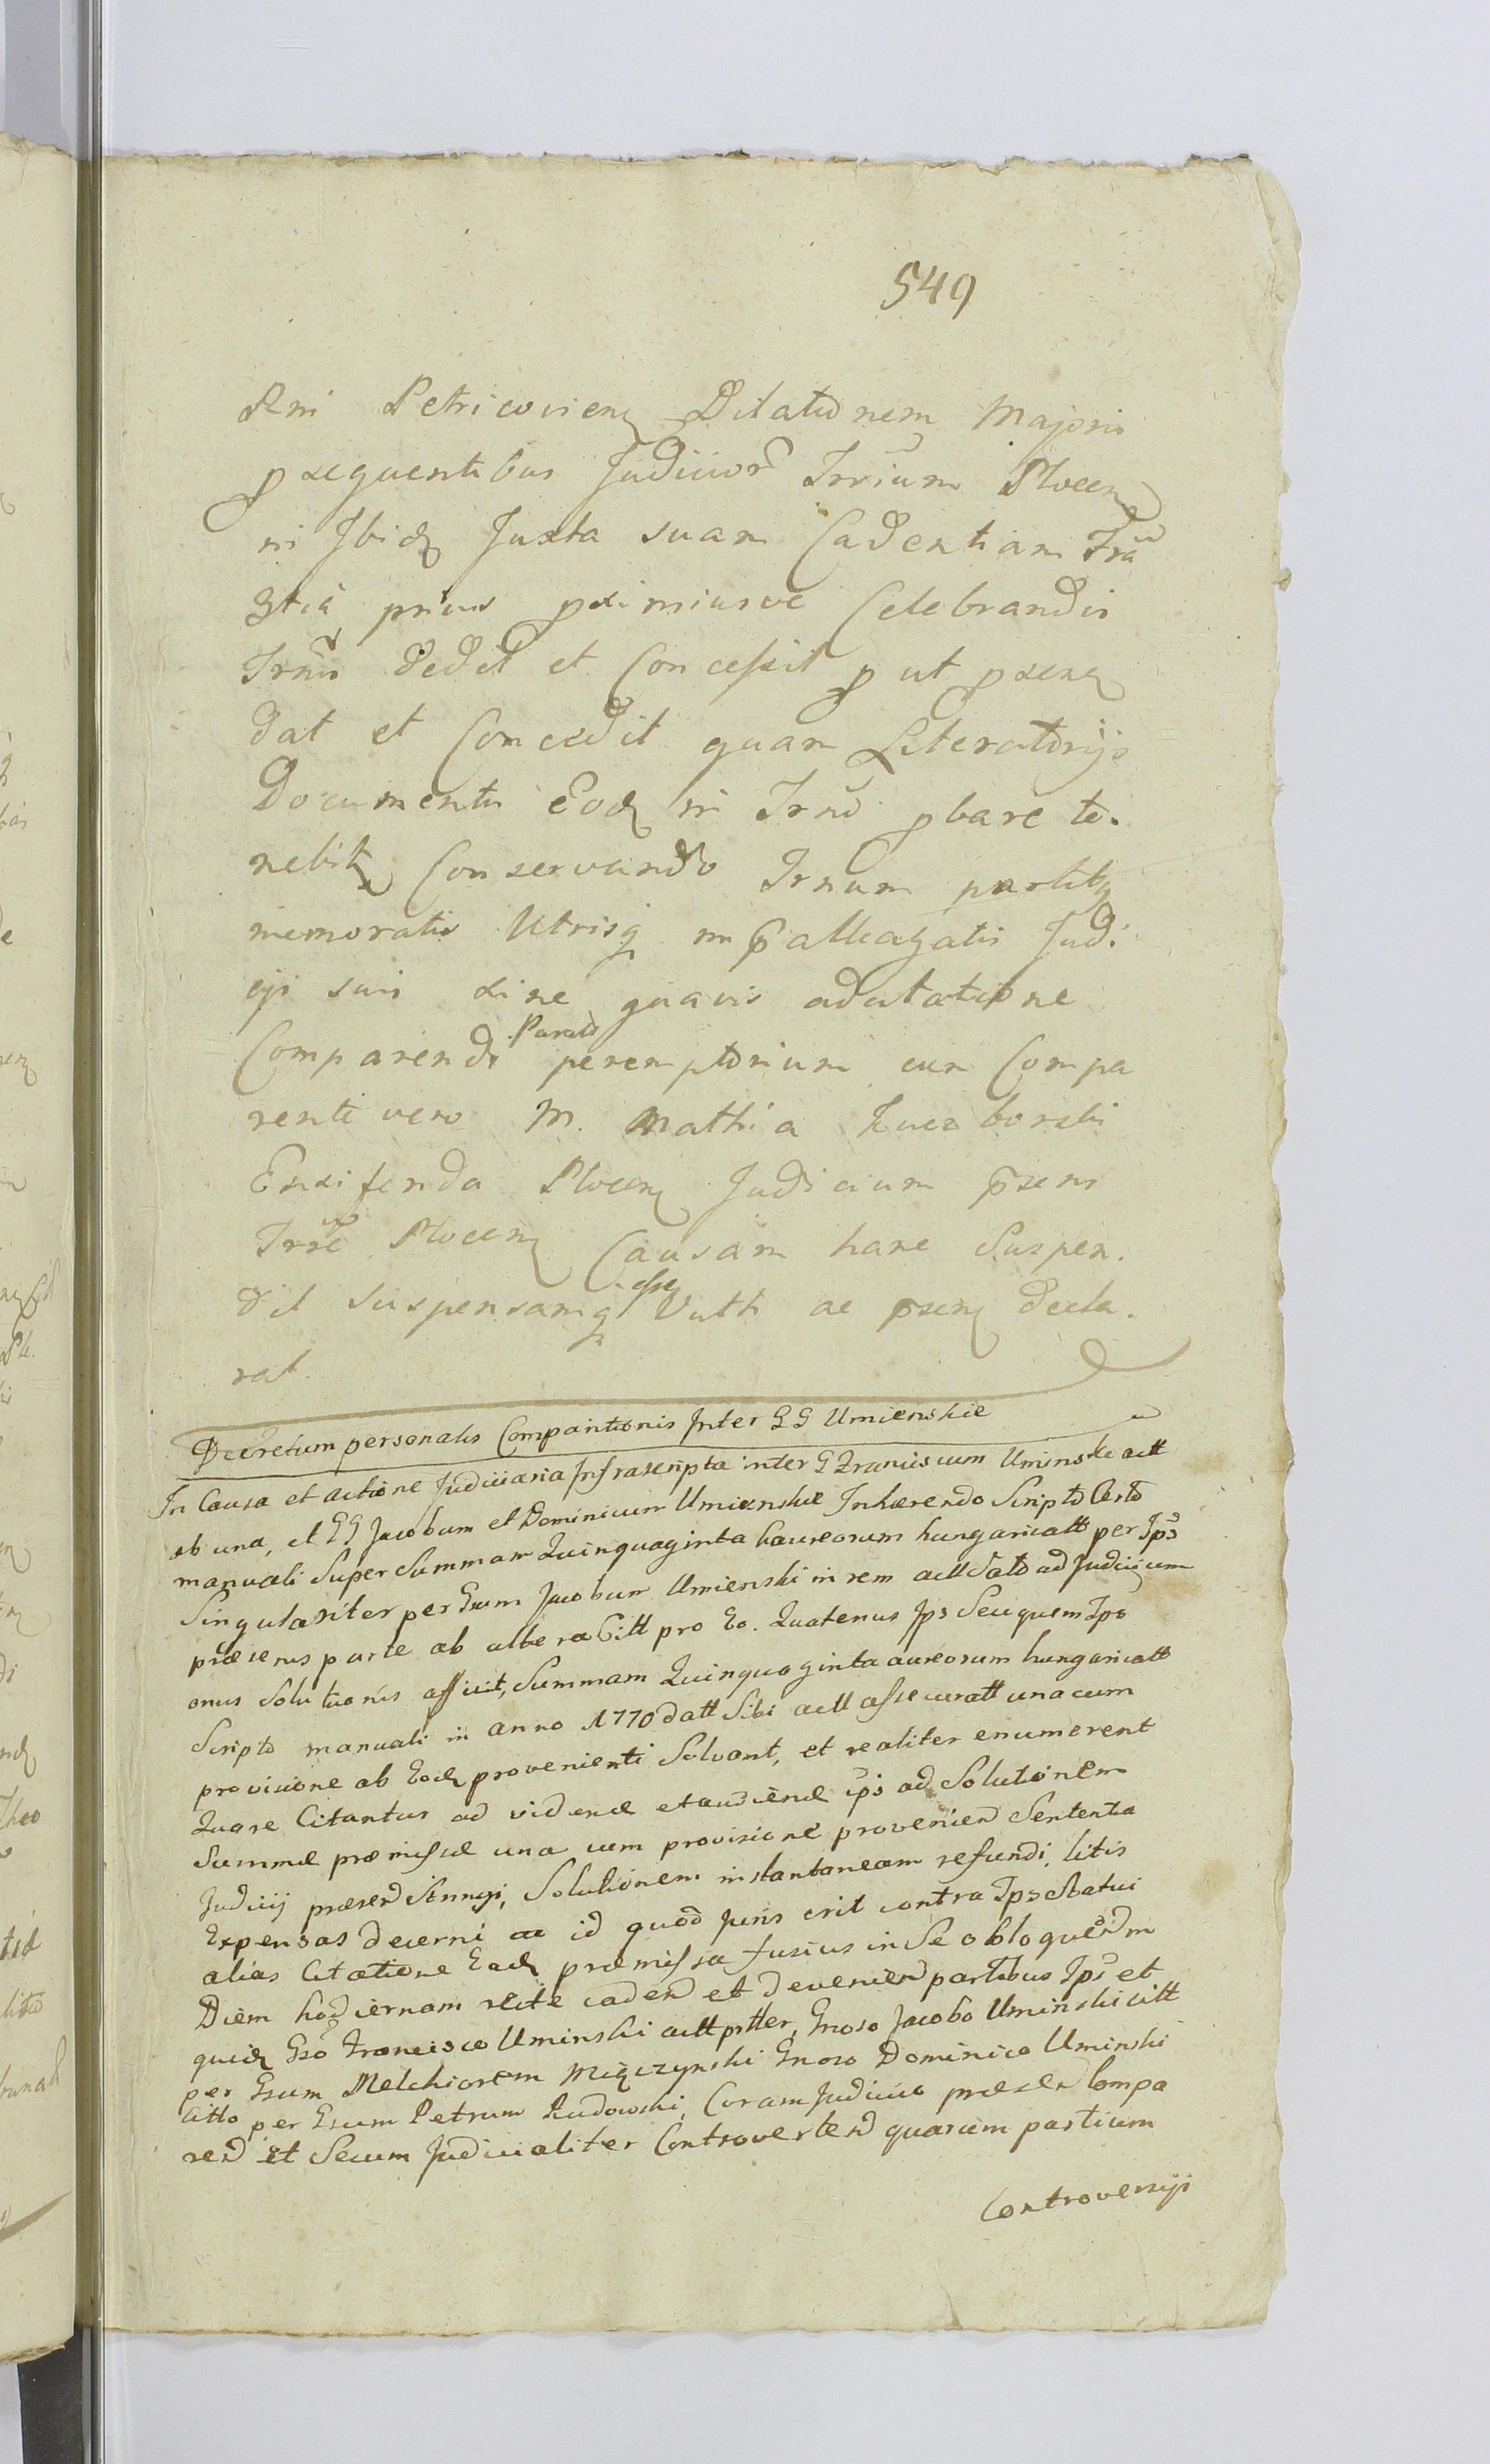 549
Rni Petricovien Dilationem Majoris
p sequentibus Judicior Trrium Plocen
in Ibid Juxta suam Cadentiam Tra
gtia prius pximiusve Celebrandis
Trnu dedit et Concessit p ut psens
dat et Concedit quam Literatorijs
Documentis Eod in Trno pbare te.
nebit Conservando Trnum partibq
memoratis Utrisq in pallegatis Judi
cijs suis sine quavis adcitatione
Comparendi Parato peremptorium cum Compa
renti vero M. Mathia Kuczborski
Ensiferida Plocen Judicium psens
Trre Plocen Causam hanc Suspen.
dit suspensamq esse Vult ac psens decla.
rat.
Decretum personalis Comparitionis Inter GG Umienskie
In Causa et actione Judiciaria Infrascripta inter G Franciscum Uminski act
ab una, et GG Jacobum et Dominicum Umienskie Inhærendo Scripto Certo
manuali Super Summam Quinquaginta Laureorum hungaricall per Ips
Singulariter per Gsum Jacobum Umienski in rem act Dato ad Judicium
præsens parte ab altera Citt pro Eo. Quatenus Ips Seu quem Ips
onus Solutionis afficit, Summam Quinquaginta aureorum hungaricall
Scripto manuali in anno 1770 datt Sibi act assecuratt una cum
provisione ab Eod provenienti Solvant, et realiter enumerent
Quare Citantur ad vidend et audiend ips ad Solutionem
Summæ præmissæ una cum provisione provenien Sententia
Judicij præsen Stringi, Solutionem instantaneam refundi, litis
Expensas decerni ac id quod Juris erit contra Ips Statui
alias Citatione Ead præmissa fusius in Se obloquen
Diem hodiernam recte caden et devenien partibus Ips et
quid Gso Francisco Uminski act ptter, Gnoso Jacobo Uminski citt
per Gsum Melchiorem Miączynski Gnoso Dominico Uminski
Citto per Gsum Petrum Rudowski, Coram Judicio præsen Compa
ren et Secum Judicialiter Controverten quarum partium
Controversijs